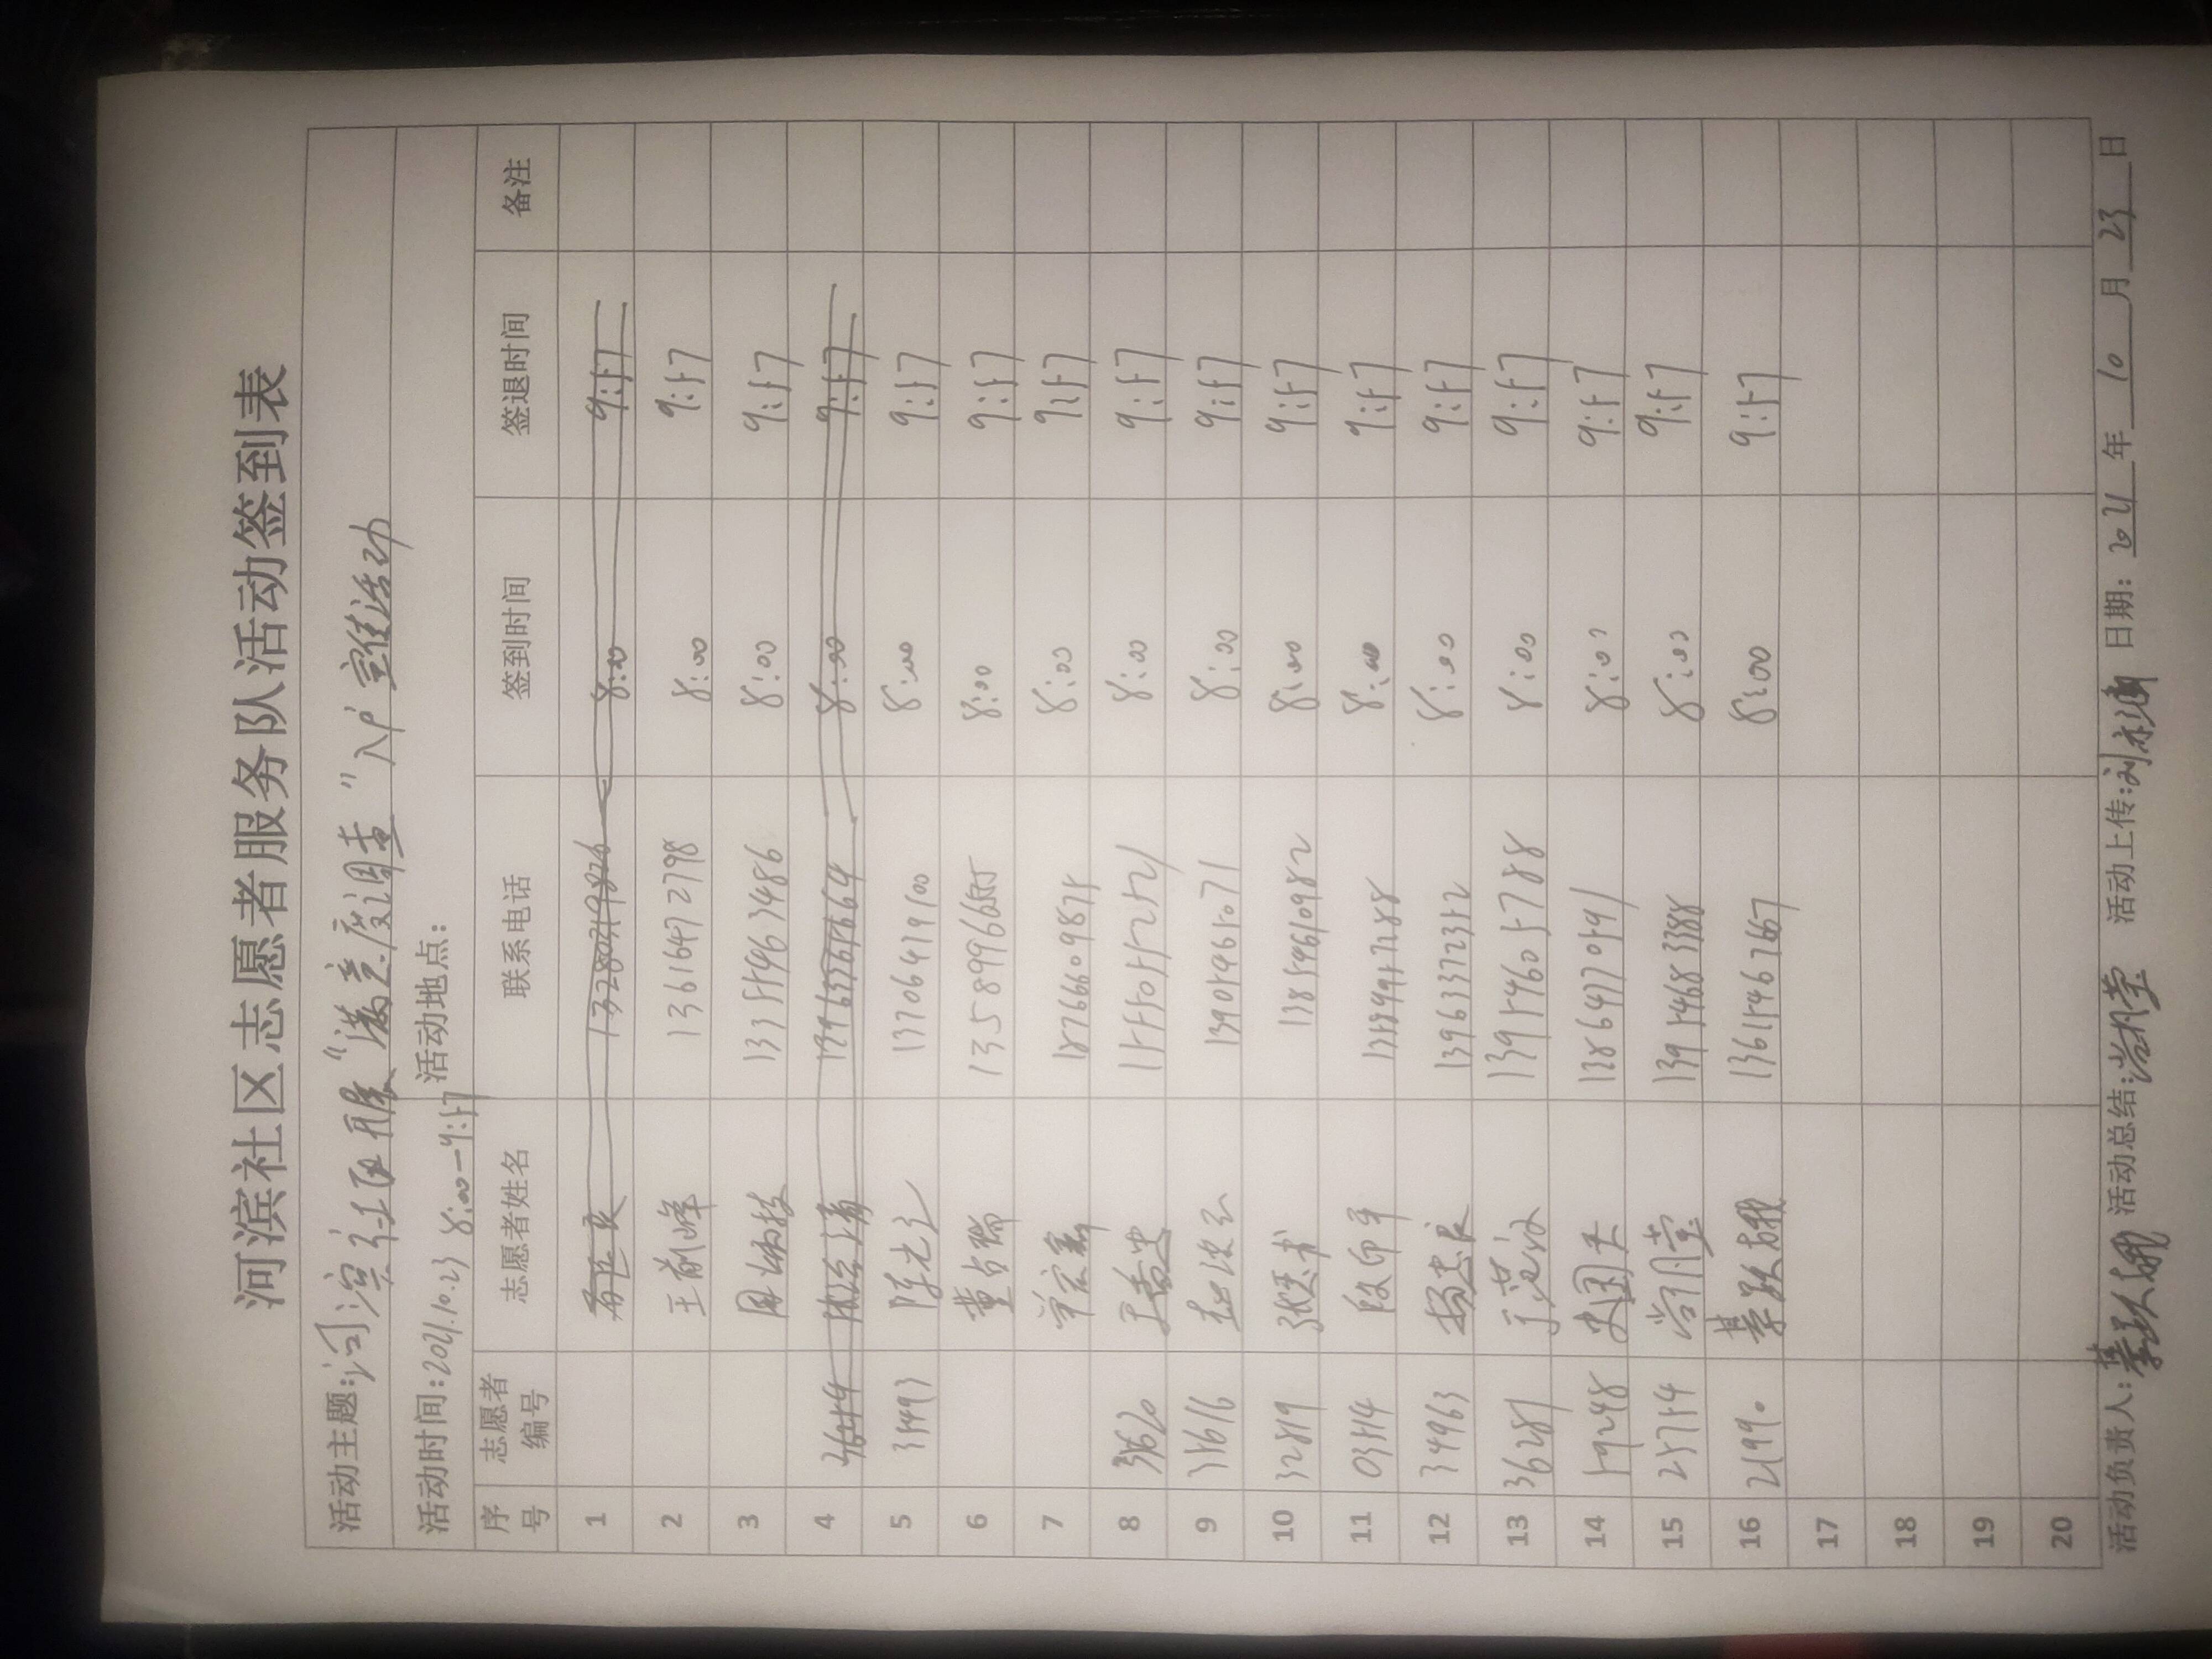 河滨社区志愿者服务队活动签到表
活动主题:河滨社区开展“满意度调查”入户宣传活动
活动时间:2021.10.23 8:00—9:57 活动地点:
序号 志愿者编号 志愿者姓名 联系电话 签到时间 签退时间 备注
1 8:00 9:57
2 王前峰 13616472798 8:00 9:57
3 13355463486 8:00 9:57
4 8:00 9:57
5 35493 陈光之 13706419100 8:00 9:57
6 董占瑞 8:00 9:57
7 18766609875 8:00 9:57
8 王秀史 15550552521 8:00 9:57
9 35616 13905465071 8:00 9:57
10 32819 13854610982 8:00 9:57
11 03514 段印平 8:00 9:57
12 34963 杨忠良 13963372352 8:00 9:57
13 36287 13954605788 8:00 9:57
14 59248 史国夫 13864770591 8:00 9:57
15 25754 尚月莹 13954683388 8:00 9:57
16 21990 綦跃娥 13615467667 8:00 9:57
17
18
19
20
活动负责人:綦跃娥 活动总结:尚月莹 活动上传:刘 日期:2021年10月23日